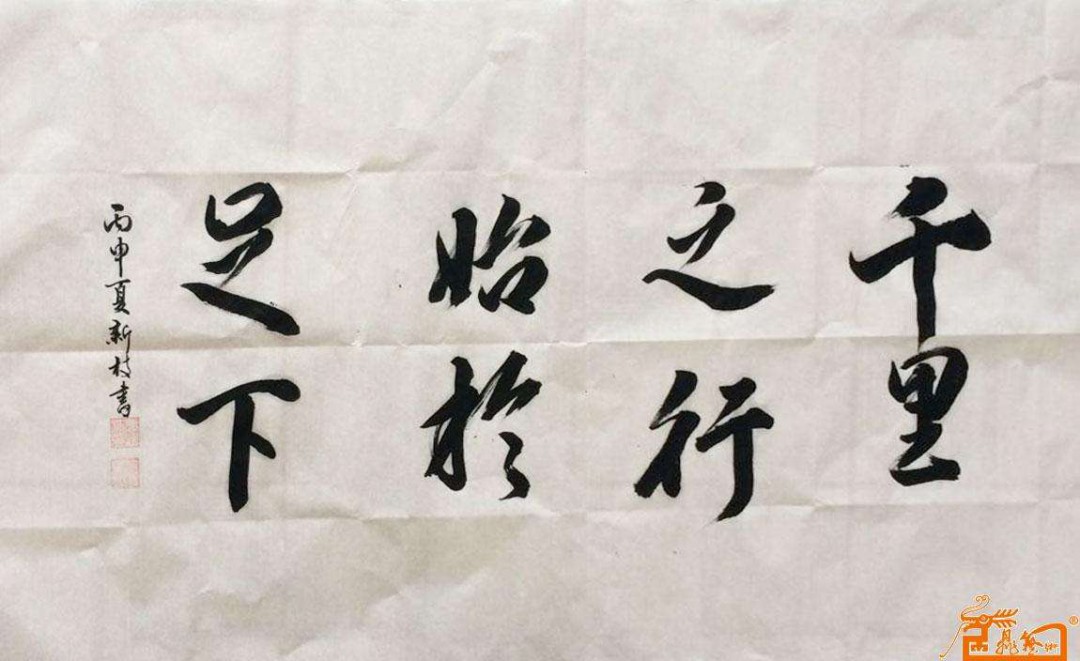 千里
之行
始於
足下
丙申夏新枝書